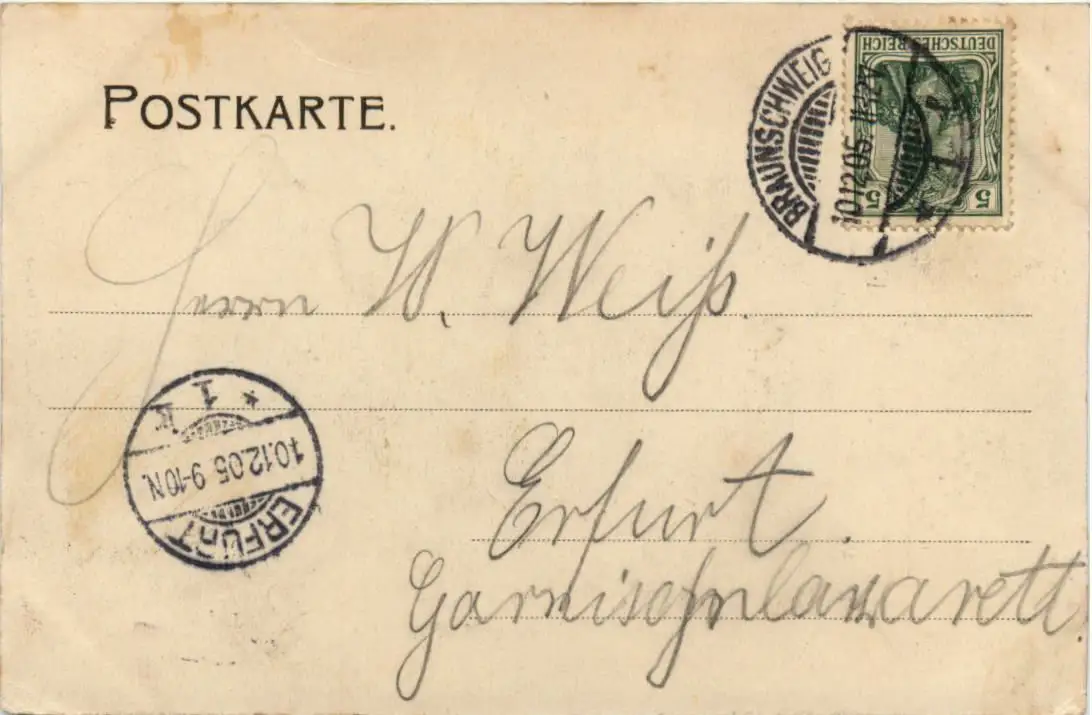 POSTKARTE.
DEUTSCHES REICH
5 5
BRAUNSCHWEIG
10.12.05. 11-12V.
* 1
Herrn W. Weiß.
* 1 k
10.12.05 9-10N.
ERFURT
Erfurt.
Garnisonlazarett.